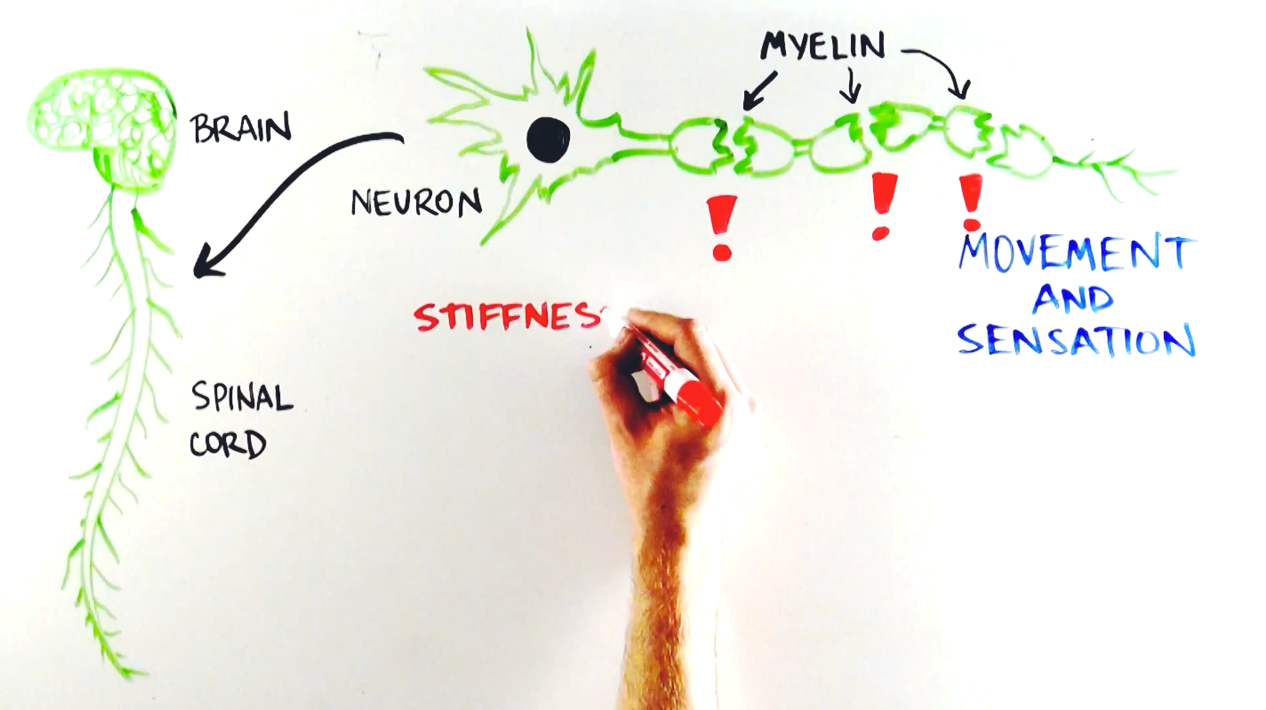 MYELIN
BRAIN
NEURON
MOVEMENT
AND
SENSATION
STIFFNES
SPINAL
CORD